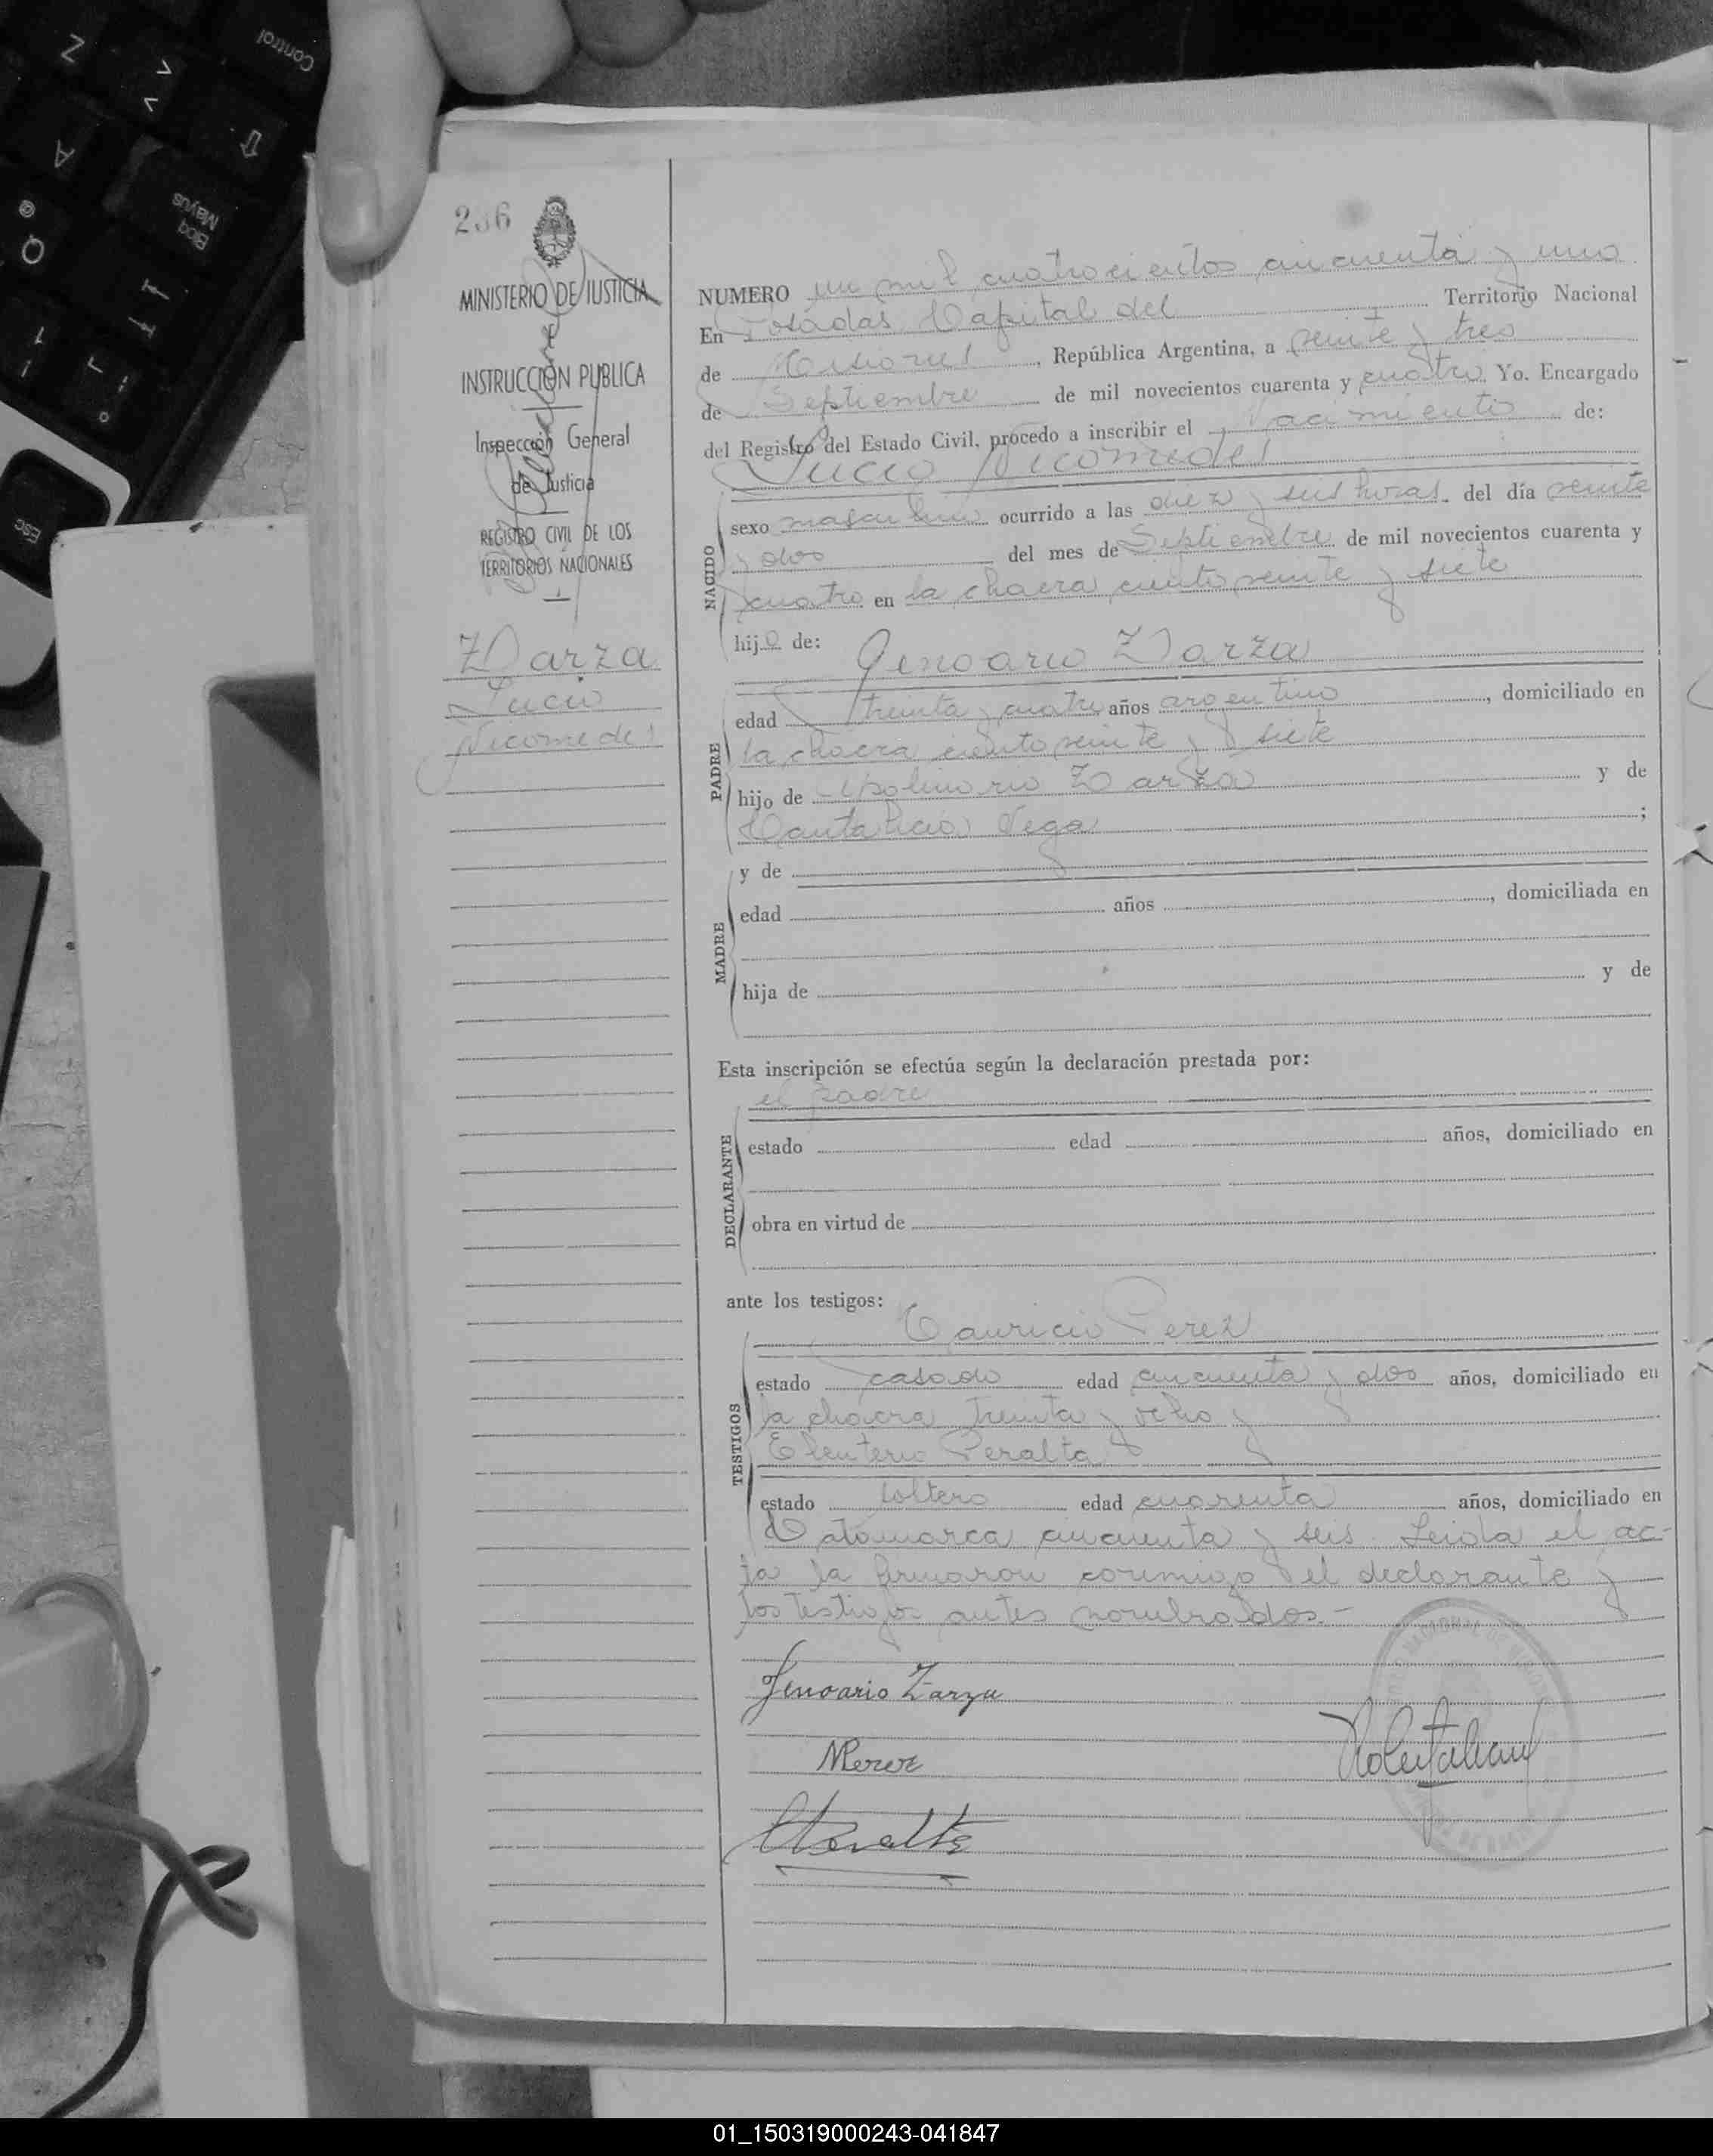 Control
Z
A
Bloq
Mayús
@
Q
1
Esc
236
MINISTERIO DE JUSTICIA
INSTRUCCIÓN PUBLICA
Inspección General
de Justicia
REGISTRO CIVIL DE LOS
TERRITORIOS NACIONALES
Zarza
Lucio
Nicomedes
NUMERO un mil cuatrocientos cincuenta y uno
En Posadas Capital del Territorio Nacional
de Misiones, República Argentina, a veinte y tres
de Septiembre de mil novecientos cuarenta y cuatro Yo. Encargado
del Registro del Estado Civil, procedo a inscribir el Nacimiento de:
Lucio Nicomedes
NACIDO
sexo masculino ocurrido a las diez y seis horas. del día veinte
y dos del mes de Septiembre de mil novecientos cuarenta y
cuatro en la chacra ciento veinte y siete
hijo de: Genoario Zarza
PADRE
edad treinta y cuatro años argentino, domiciliado en
la chacra ciento veinte y siete
hijo de Apolinario Zarza y de
Cantalicia Vega;
MADRE
y de
edad años, domiciliada en
hija de y de
Esta inscripción se efectúa según la declaración prestada por:
el padre
DECLARANTE
estado edad años, domiciliado en
obra en virtud de
ante los testigos:
Mauricio Perez
TESTIGOS
estado casado edad cincuenta y dos años, domiciliado en
la chacra treinta y ocho y
Eleuterio Peralta
estado soltero edad cuarenta años, domiciliado en
Catamarca cincuenta y seis. Leida el ac-
ta la firmaron conmigo el declarante y
los testigos antes nombrados.-
Jenoario Zarza
MPerez
EPeralta
01_150319000243-041847